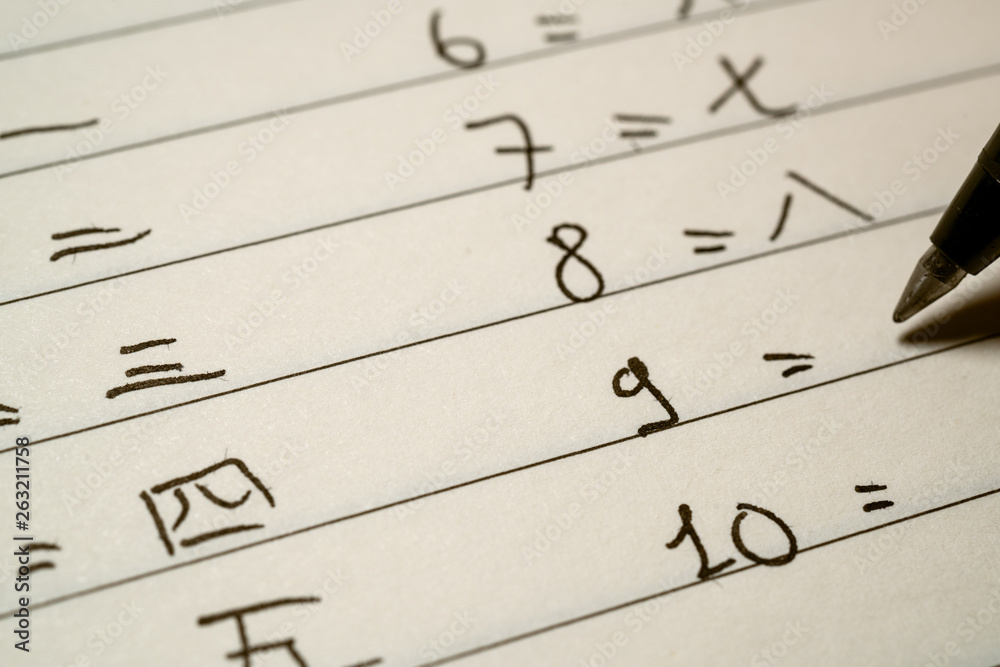 一
二
= 三
= 四
五
6 =
7 = 七
8 = 八
9 =
10 =
Adobe Stock | #263211758